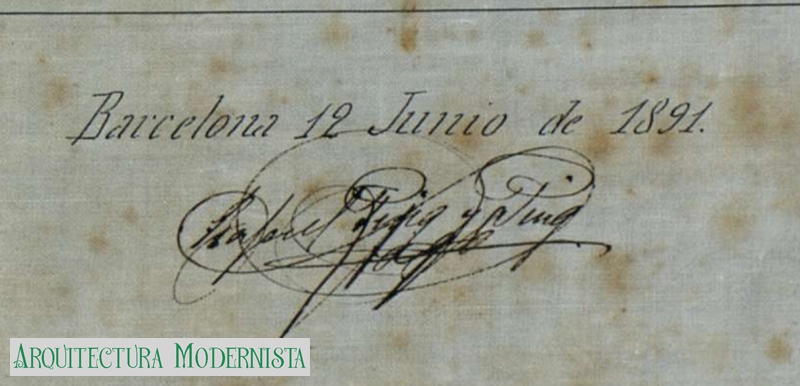 Barcelona 12 Junio de 1891.
Rafael Puig y Puig
ARQUITECTURA MODERNISTA